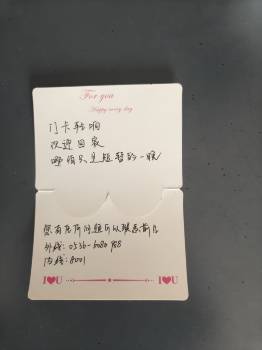 For you
Happy every day
门卡轻响
欢迎回家
哪怕只是短暂的一晚
您有任何问题可以联系前几
外线: 0536-6080988
内线: 8001
I♥U I♥U